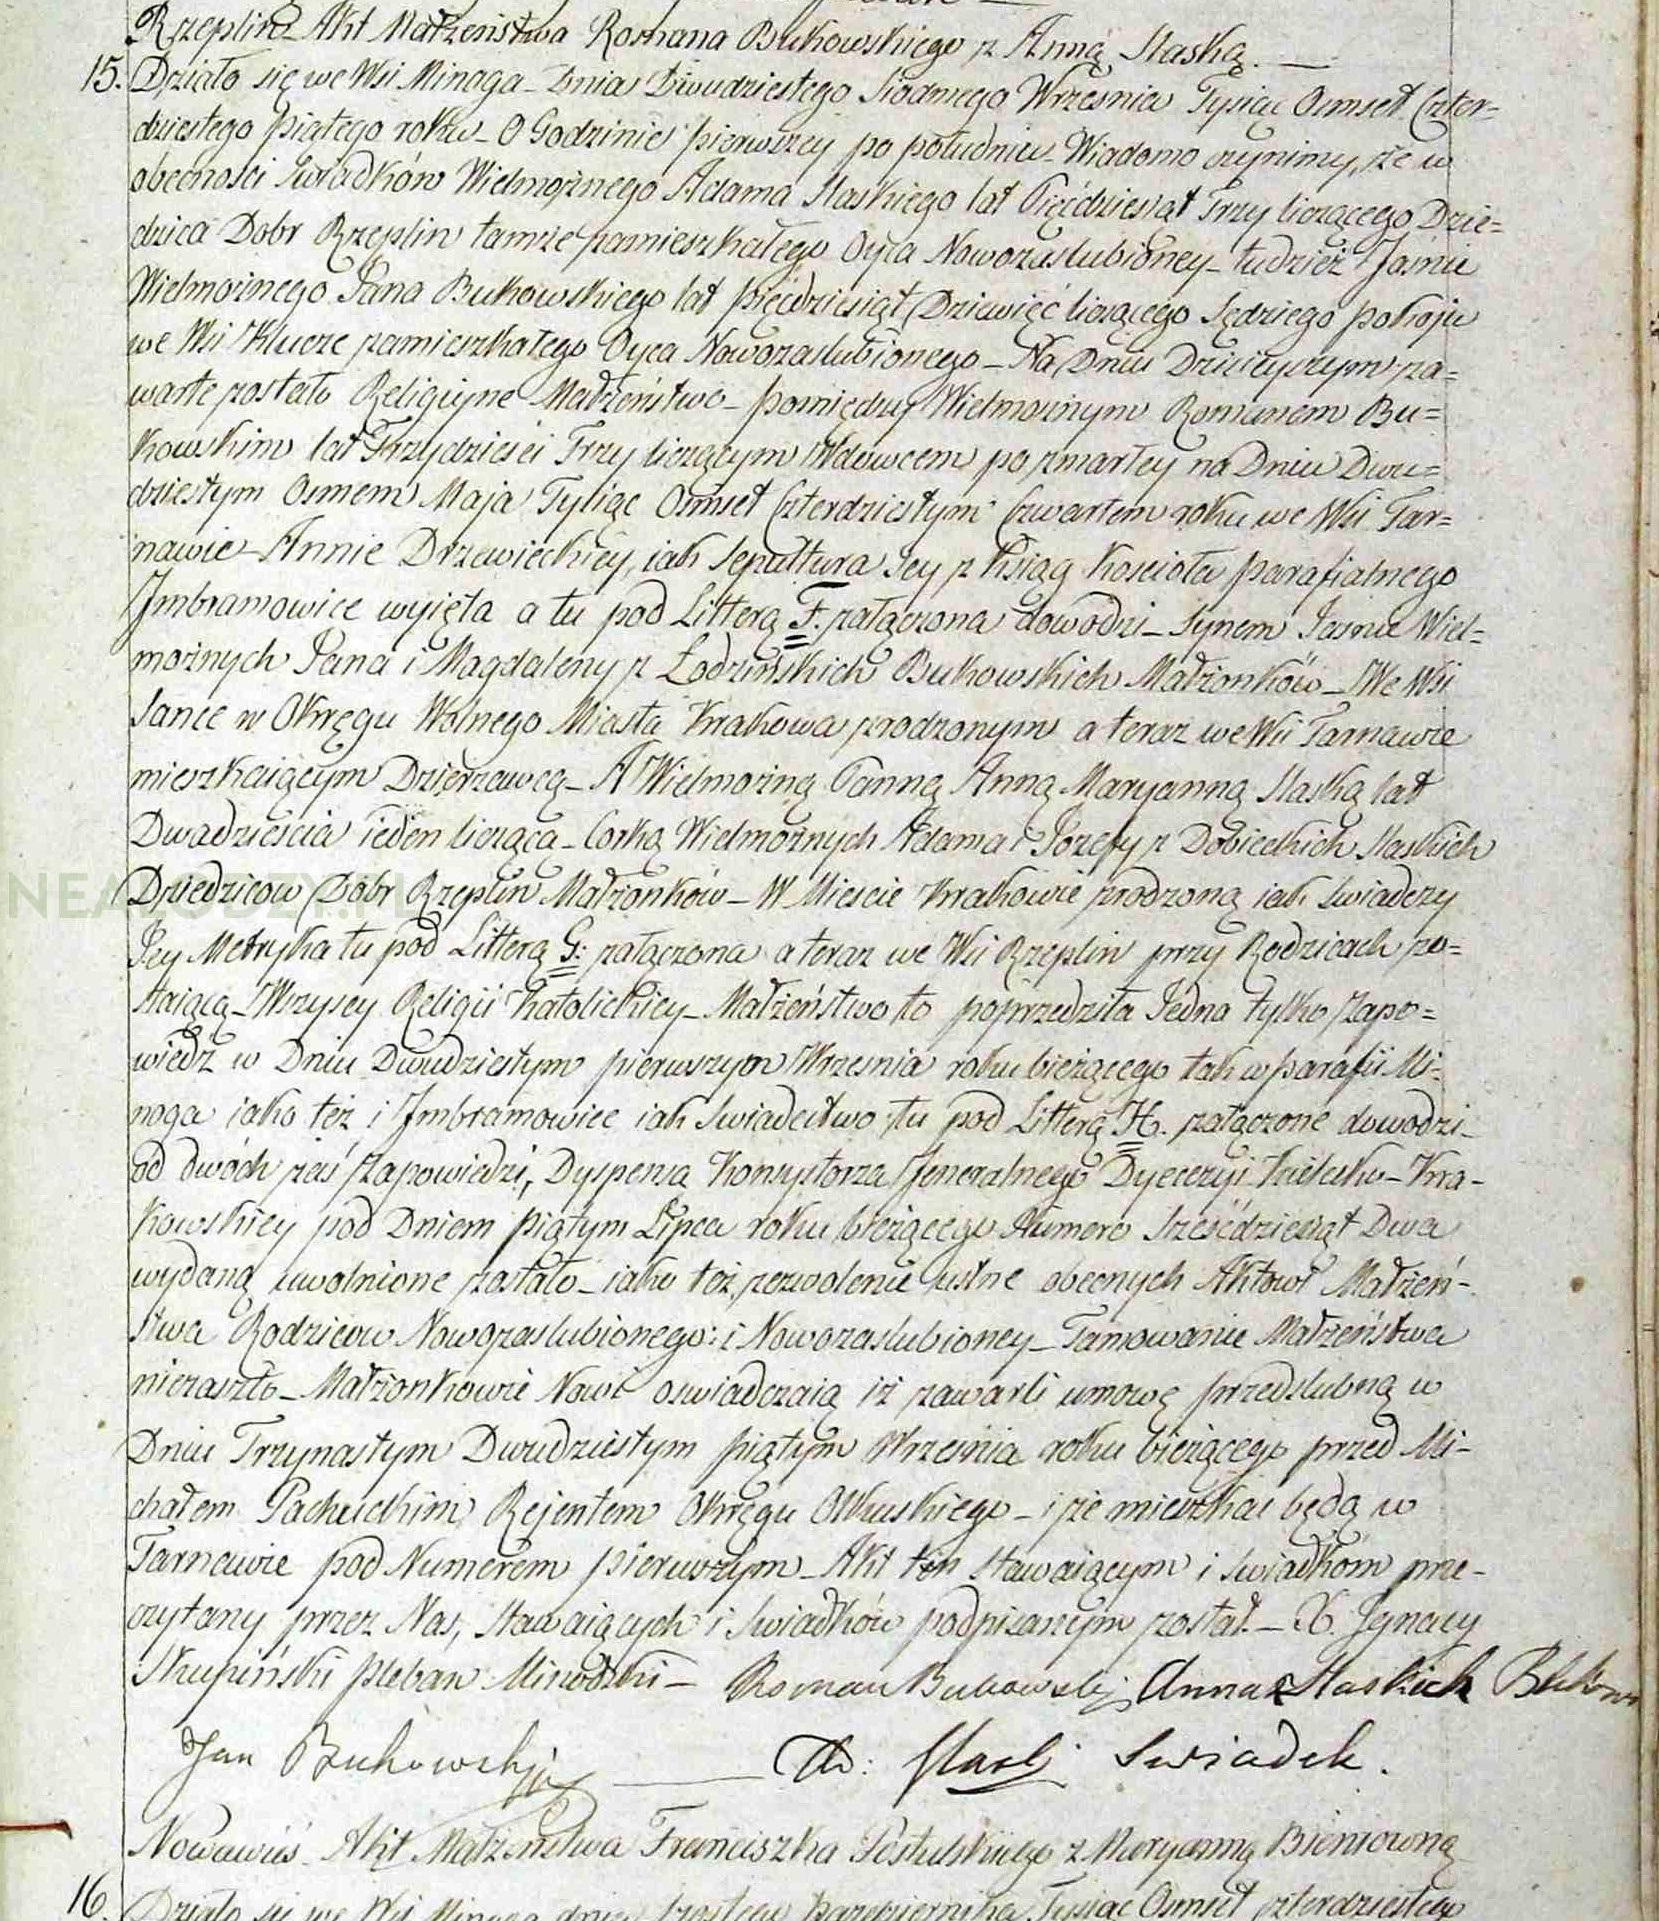 Rzeplin Akt Małżeństwa Romana Bukowskiego z Anną Slaską.
15. Działo się we Wsi Minoga Dnia Dwudziestego Siodmego Wrzesnia Tysiąc Osmset Czter=
dziestego piątego roku O Godzinie pierwszey po południu Wiadomo czynimy, że w
obecności Swiadków Wielmożnego Adama Slaskiego lat Pięćdziesiąt Trzy liczącego Dzie=
dzica Dobr Rzeplin tamże zamieszkałego Oyca Nowozaslubioney tudzież Jaśnie
Wielmożnego Jana Bukowskiego lat pięćdziesiąt Dziewięć liczącego Sędziego pokoju
we Wsi Klucze zamieszkałego Oyca Nowozaslubionego Na Dniu Dzisieyszym za=
warte zostało Religiyne Małżeństwo pomiędzy Wielmożnym Romanem Bu=
kowskim lat Trzydzieści Trzy liczącym Wdowcem po zmarłey na Dniu Dwu=
dziestym Osmem Maja Tysiąc Osmset Czterdziestym Czwartem roku we Wsi Tar=
nawie Annie Drzewieckiey, iak Sepultura Jey z Ksiąg Kościoła parafialnego
Jmbramowice wyięta a tu pod Litterą F. załączona dowodzi Synem Jasnie Wiel=
możnych Jana i Magdaleny z Łodzińskich Bukowskich Małżonków We Wsi
Sance w Okręgu Wolnego Miasta Krakowa zrodzonym a teraz we Wsi Tarnawie
mieszkaiącym Dzierzawcą A Wielmożną Panną Anną Maryanną Slaską lat
Dwadzieścia ieden liczącą Corką Wielmożnych Adama i Józefy z Dobieckich Slaskich
Dziedziców Dóbr Rzeplin Małżonków W Mieście Krakowie zrodzoną iak świadczy
Jey Metryka tu pod Litterą G: załączona a teraz we Wsi Rzeplin przy Rodzicach zo=
staiącą Wszyscy Religii Katolickiey Małżeństwo to poprzedziła Jedna tylko Zapo=
wiedź w Dniu Dwudziestym pierwszym Wrzesnia roku bieżącego tak w parafii Mi=
noga iako też i Jmbramowice iak Swiadectwo tu pod Litterą H. załączone dowodzi
od dwóch zaś Zapowiedzi, Dyspensą Konsystorza Jeneralnego Dyecezyi Kielecko-Kra-
kowskiey pod Dniem piątym Lipca roku bieżącego Numero Sześćdziesiąt Dwa
wydaną uwolnione zostało iako też zezwolenie ustne obecnych Aktowi Małżeń-
stwa Rodziców Nowozaslubionego: i Nowozaslubioney Tamowanie Małżeństwa
niezaszło Małżonkowie Nowi oswiadczaią iż zawarli umowę przedslubną w
Dniu Trzynastym Dwudziestym piątym Wrzesnia roku bieżącego przed Mi-
chałem Pachuckim Rejentem Okręgu Olkuskiego i że mieszkać będą w
Tarnawie pod Numerem pierwszym Akt ten Stawaiącym i Swiadkom prze-
czytany przez Nas, Stawaiących i Swiadków podpisanym został. X. Jgnacy
Skupiński pleban Minodzki Roman Bukowski Anna z Slaskich Bukows
Jan Bukowski Slaski Swiadek.
Nowawieś Akt Małżeństwa Franciszka Postulskiego z Maryanną Bieniowną
16. Działo się we Wsi Minoga dnia Października Tysiąc Osmset czterdziestego
NEA